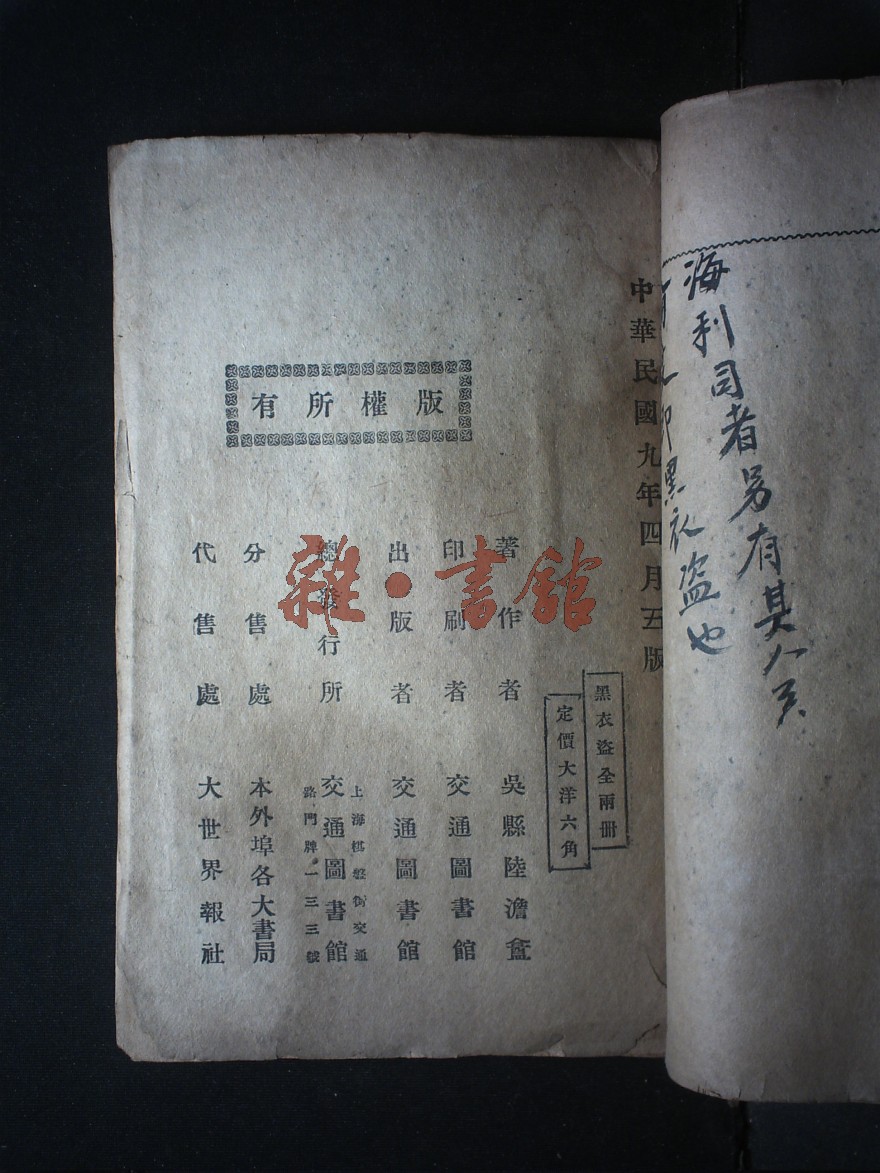 海利司者另有其人矣
即黑衣盗也
中華民國九年四月五版
黑衣盜全兩册
定價大洋六角
版權所有
著作者 吳縣陸澹盦
印刷者 交通圖書館
出版者 交通圖書館
總發行所 上海棋盤街交通路門牌一三三號 交通圖書館
分售處 本外埠各大書局
代售處 大世界報社
雜·書館